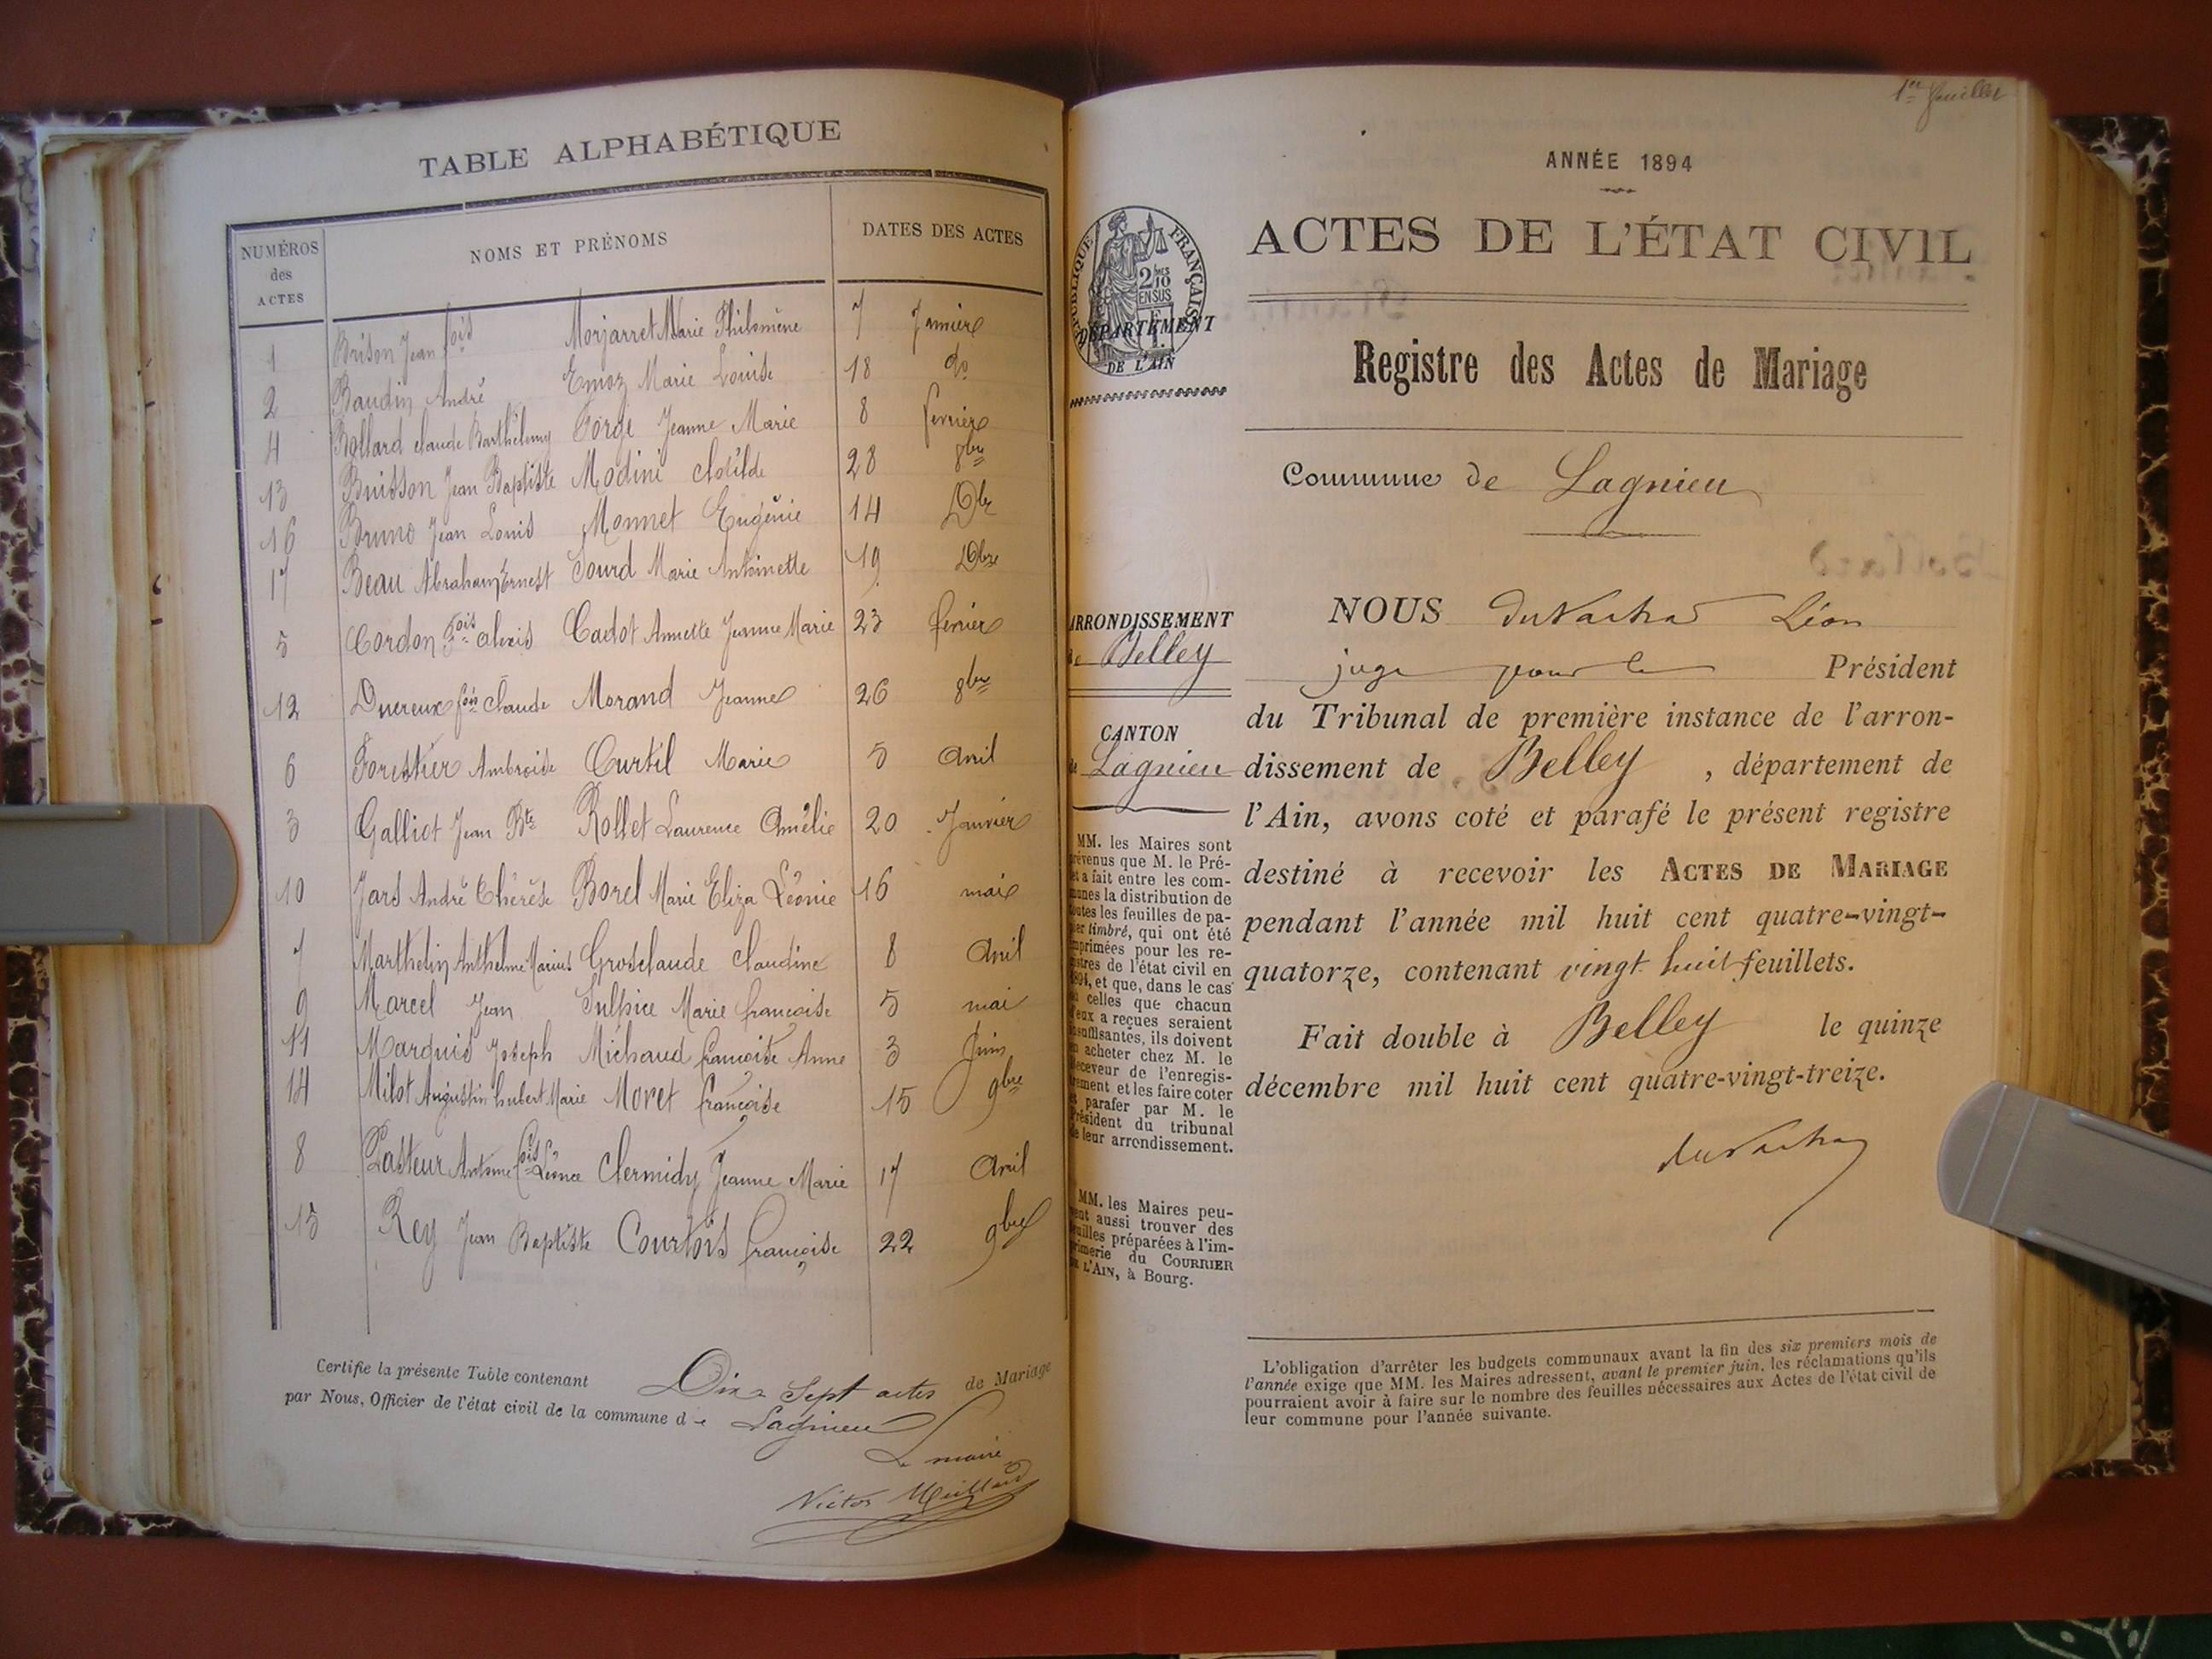 TABLE ALPHABÉTIQUE
NUMÉROS des ACTES
NOMS ET PRÉNOMS
DATES DES ACTES
1 Brison Jean fois Morjarret Marie Philomène 7 Janvier
2 Baudin André Emoz Marie Louise 18 do
4 Bollard claude Barthélemy Forge Jeanne Marie 8 fevrier
13 Buisson Jean Baptiste Modini clotilde 28 8bre
16 Bruno Jean Louis Monnet Eugénie 14 Xbr
17 Beau Abraham Ernest Sourd Marie Antoinette 19 Xbre
5 Cordon fois alexis Cadot Annette Jeanne Marie 23 fevrier
12 Duereux fois claude Morand Jeanne 26 8bre
6 Forestier Ambroise Curtil Marie 5 avril
3 Galliot Jean Bte Rollet Laurence Amélie 20 Janvier
10 Jars André Thérèse Borel Marie Eliza Léonie 16 mai
7 Marthelin Anthelme Marius Grosclaude claudine 8 Avril
9 Marcel Jean Sulpice Marie françoise 5 mai
11 Marquis Joseph Michaud françoise Anne 3 Juin
14 Milot Augustin hubert Marie Moret françoise 15 9bre
8 Pasteur Antoine fois Léonce Clermidy Jeanne Marie 17 Avril
15 Rey Jean Baptiste Courtois françoise 22 9bre
Certifie la présente Table contenant Dix Sept actes de Mariage
par Nous, Officier de l'état civil de la commune de Lagnieu
Le maire
Victor
1er feuillet
ANNÉE 1894
ACTES DE L'ÉTAT CIVIL
RÉPUBLIQUE FRANÇAISE
2 fres
EN SUS
DÉPARTEMENT
DE L'AIN
Registre des Actes de Mariage
Commune de Lagnieu
ARRONDISSEMENT
de Belley
CANTON
de Lagnieu
MM. les Maires sont
prévenus que M. le Pré-
fet a fait entre les com-
munes la distribution de
toutes les feuilles de pa-
pier timbré, qui ont été
imprimées pour les re-
gistres de l'état civil en
1894, et que, dans le cas
où celles que chacun
d'eux a reçues seraient
insuffisantes, ils doivent
en acheter chez M. le
Receveur de l'enregis-
trement et les faire coter
et parafer par M. le
Président du tribunal
de leur arrondissement.
MM. les Maires peu-
vent aussi trouver des
feuilles préparées à l'im-
primerie du COURRIER
DE L'AIN, à Bourg.
NOUS Léon
juge pour le Président
du Tribunal de première instance de l'arron-
dissement de Belley, département de
l'Ain, avons coté et parafé le présent registre
destiné à recevoir les ACTES DE MARIAGE
pendant l'année mil huit cent quatre-vingt-
quatorze, contenant vingt huit feuillets.
Fait double à Belley le quinze
décembre mil huit cent quatre-vingt-treize.
L'obligation d'arrêter les budgets communaux avant la fin des six premiers mois de
l'année exige que MM. les Maires adressent, avant le premier juin, les réclamations qu'ils
pourraient avoir à faire sur le nombre des feuilles nécessaires aux Actes de l'état civil de
leur commune pour l'année suivante.